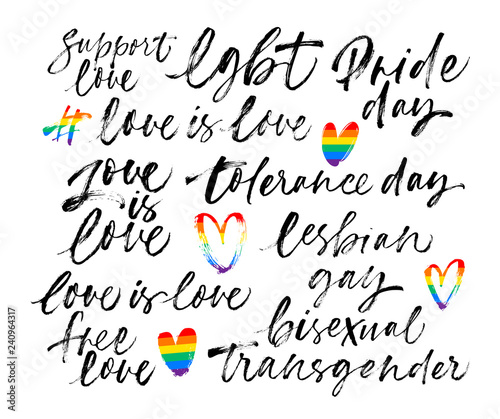 support
love
lgbt
Pride
day
# love is love
love
is
love
tolerance day
lesbian
gay
bisexual
transgender
love is love
free
love
Adobe Stock | #240964317